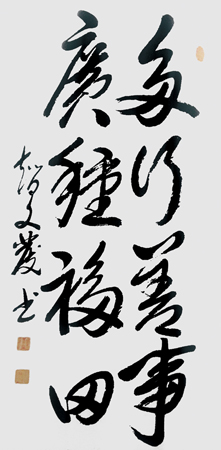 多行善事
廣種福田
智文慶书